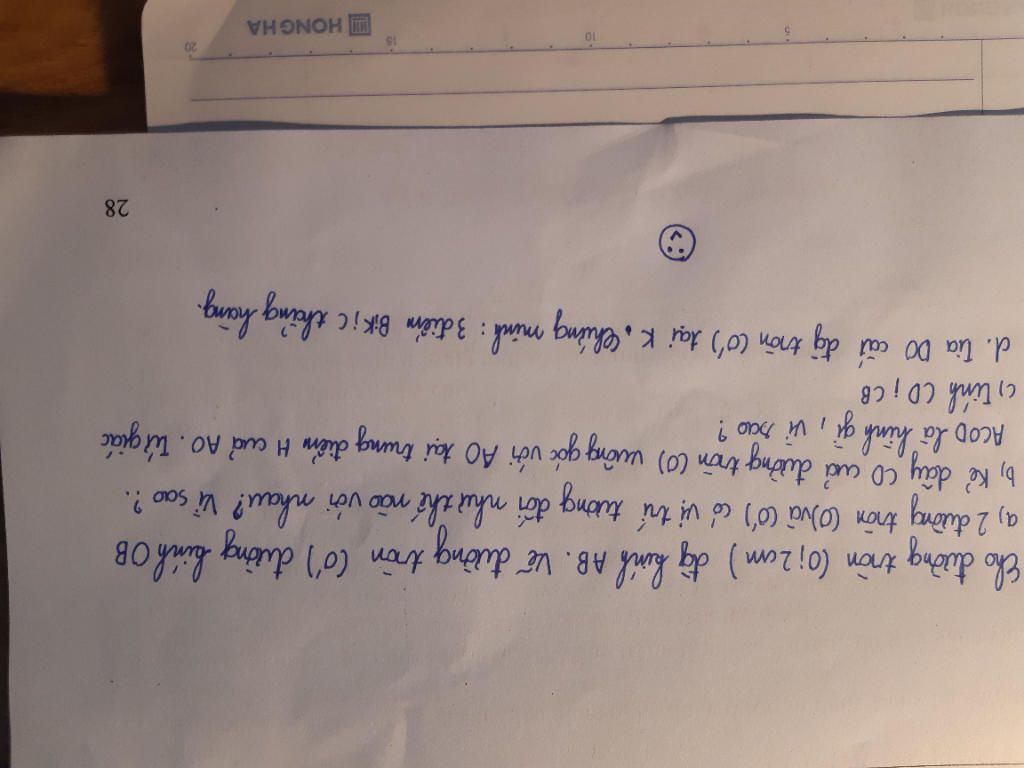 Cho đường tròn (O; 2cm) đg kính AB. Vẽ đường tròn (O') đường kính OB
a, 2 đường tròn (O) và (O') có vị trí tương đối như thế nào với nhau? Vì sao?.
b, Kẻ dây CD của đường tròn (O) vuông góc với AO tại trung điểm H của AO. Tứ giác
ACOD là hình gì, vì sao?
c, Tính CD; CB
d. Tia DO cắt đg tròn (O') tại K. Chứng minh: 3 điểm B; K; C thẳng hàng.
28
HONG HA
5 10 15 20